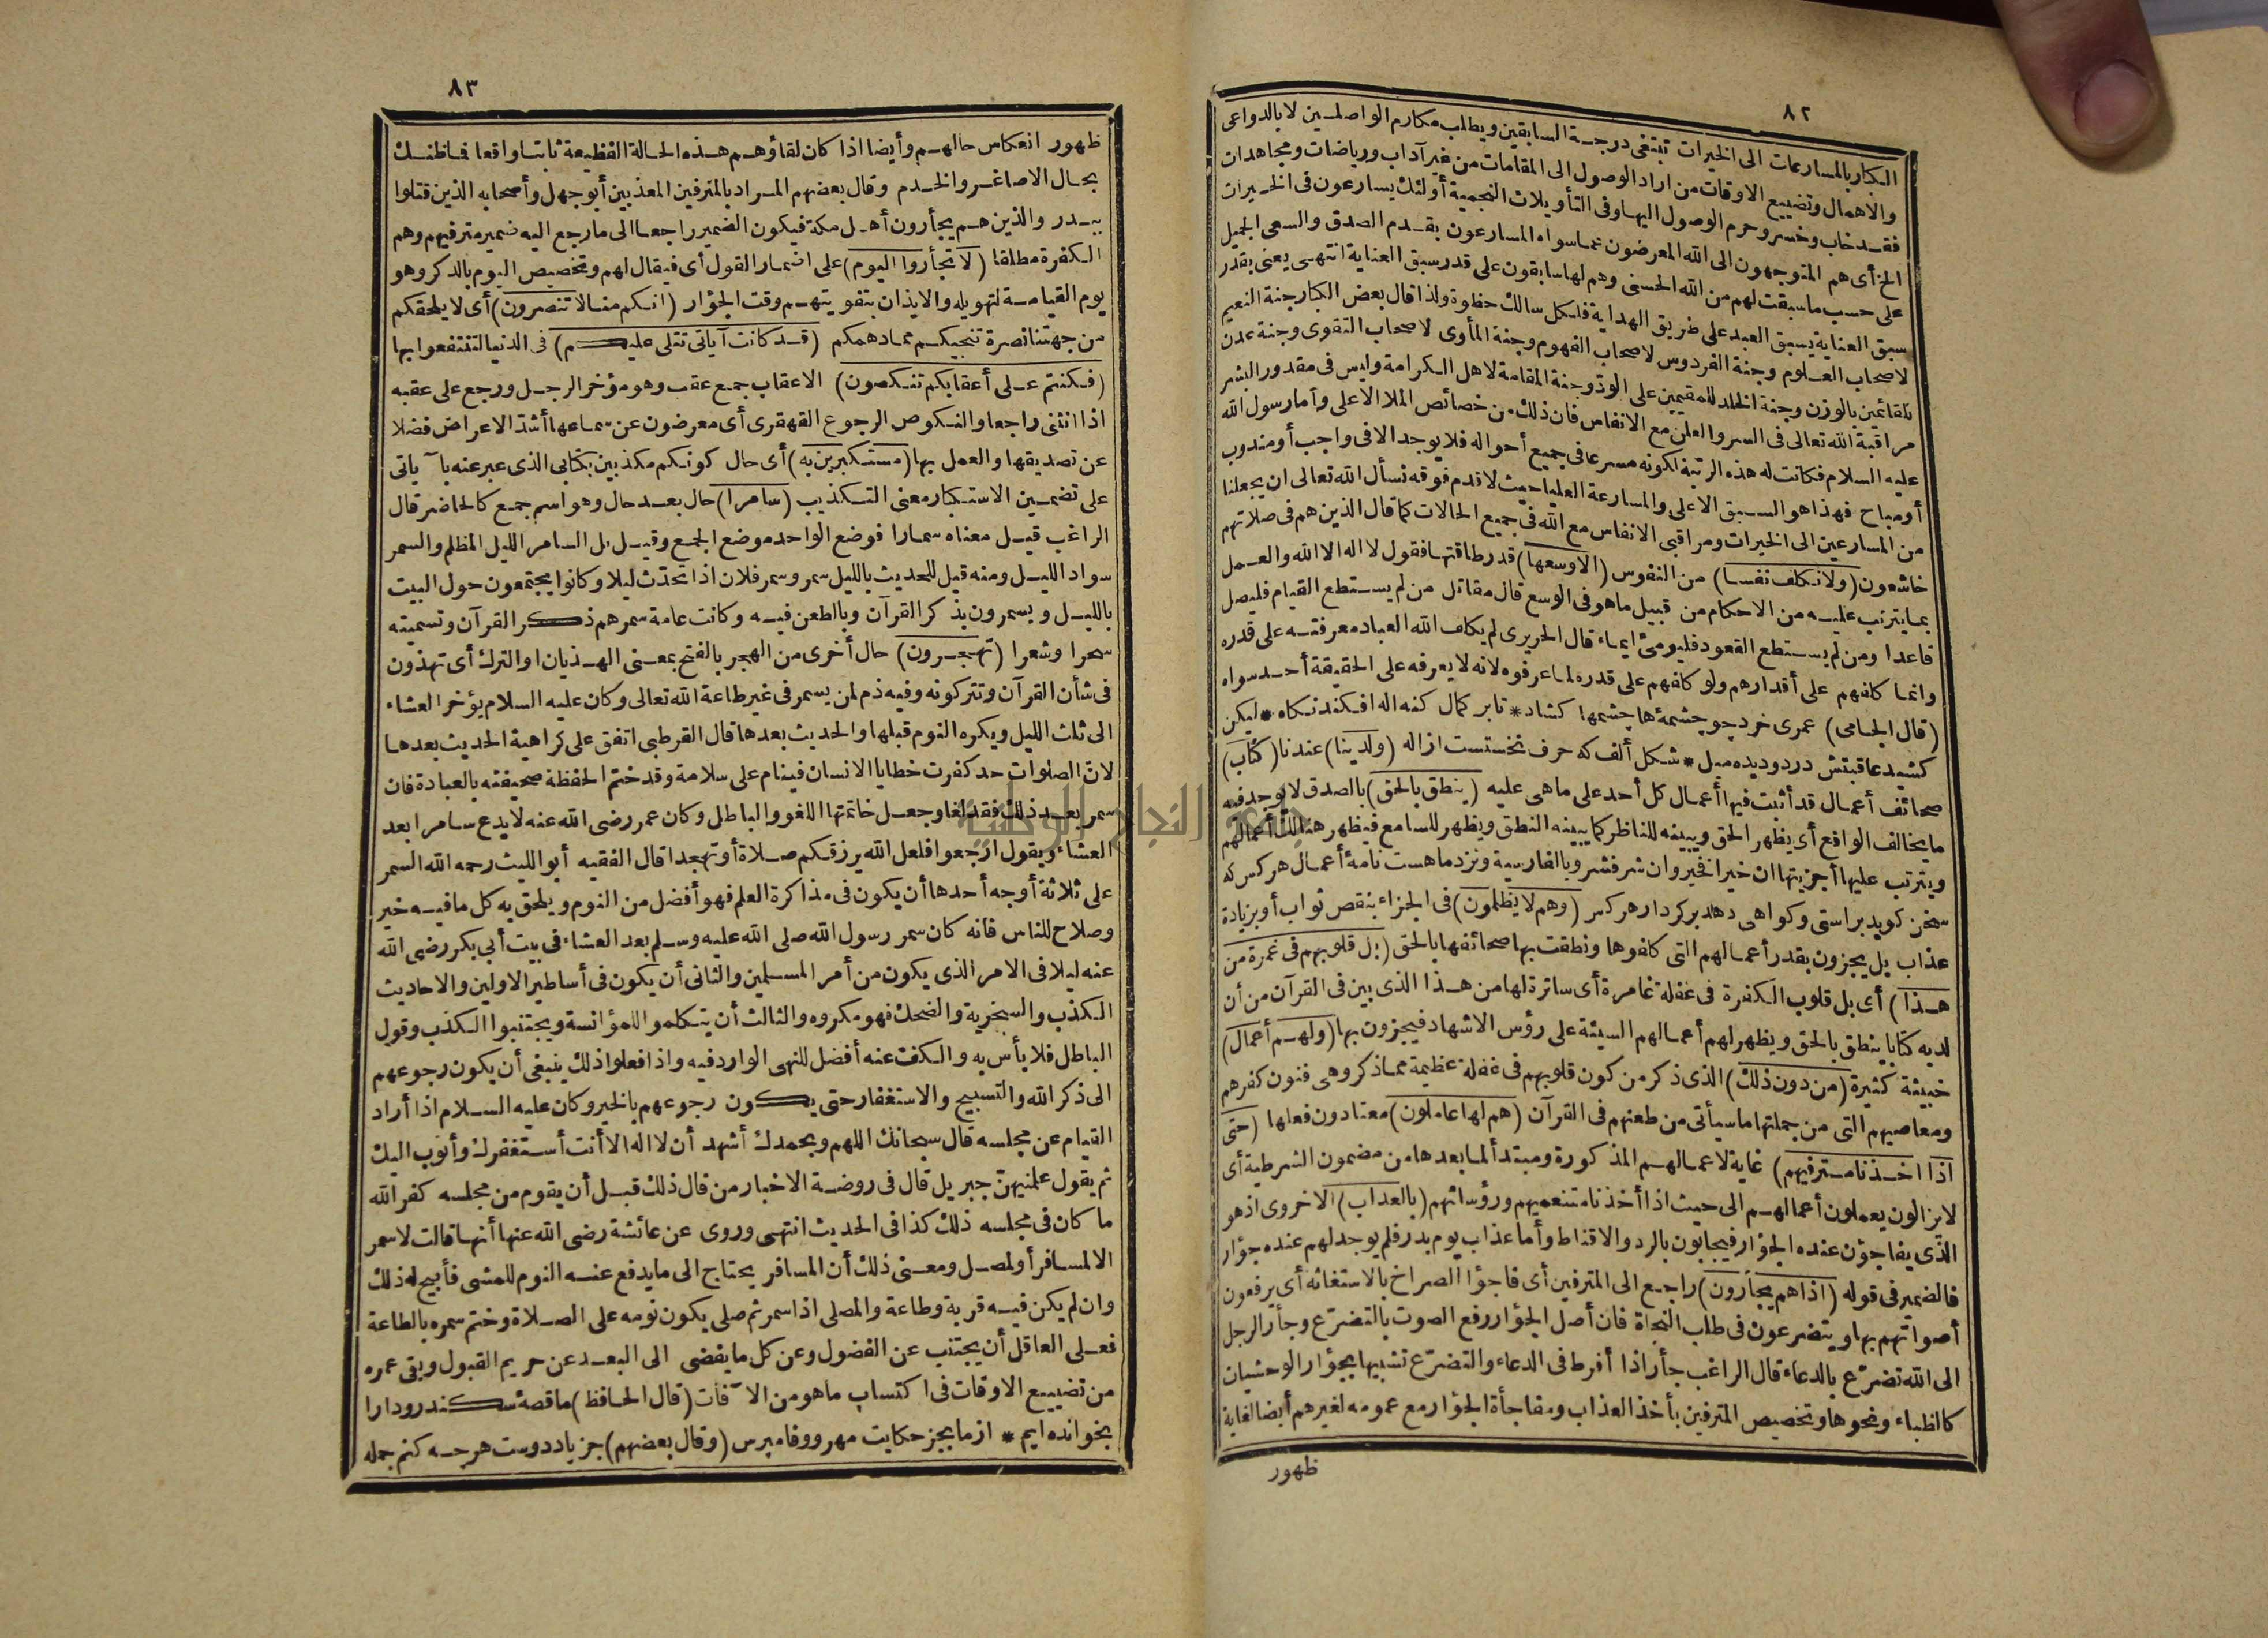 ٨٢
الكبار بالمسارعات الى الخيرات تبتغى درجة السابقين ويطلب مكارم الواصلين لا بالدواعى
والاهمال وتضييع الاوقات من اراد الوصول الى المقامات من غير آداب ورياضات ومجاهدات
فقد خاب وخسر وحرم الوصول اليها وفى التأويلات النجمية أولئك يسارعون فى الخيرات
الخ أى هم المتوجهون الى الله المعرضون عما سواه المسارعون بقدم الصدق والسعى الجميل
على حسب ما سبقت لهم من الله الحسنى وهم لها سابقون على قدر سبق العناية انتهى يعنى بقدر
سبق العناية يسبق العبد على طريق الهداية فلكل سالك حظوة ولذا قال بعض الكبار جنة النعيم
لاصحاب العلوم وجنة الفردوس لاصحاب الفهوم وجنة المأوى لاصحاب التقوى وجنة عدن
للقائمين بالوزن وجنة الخلد للمقيمين على الودّ وجنة المقامة لاهل الكرامة وليس فى مقدور البشر
مراقبة الله تعالى فى السر والعلن مع الانفاس فان ذلك من خصائص الملا الاعلى وأما رسول الله
عليه السلام فكانت له هذه الرتبة لكونه مسرعا فى جميع أحواله فلا يوجد الا فى واجب أو مندوب
أو مباح فهذا هو السبق الاعلى والمسارعة العليا حيث لا قدم فوقه نسأل الله تعالى ان يجعلنا
من المسارعين الى الخيرات ومراقبى الانفاس مع الله فى جميع الحالات كما قال الذين هم فى صلاتهم
خاشعون (ولا نكلف نفسا) من النفوس (الا وسعها) قدر طاقتها فقول لا اله الا الله والعمل
بما يترتب عليه من الاحكام من قبيل ما هو فى الوسع قال مقاتل من لم يستطع القيام فليصل
قاعدا ومن لم يستطع القعود فليومئ ايماء قال الحريرى لم يكلف الله العباد معرفته على قدره
وانما كلفهم على أقدارهم ولو كلفهم على قدره لما عرفوه لانه لا يعرفه على الحقيقة أحد سواه
(قال الجامى) عمرى خرد چو چشمهٔ ها چشمها كشاد * تا بر كمال كنه اله افكند نكاه * ليكن
كشيد عاقبتش در دو ديده ميل * شكل ألف كه حرف نخستست از اله (ولدينا) عندنا (كتاب)
صحائف أعمال قد أثبت فيها أعمال كل أحد على ما هى عليه (ينطق بالحق) بالصدق لا يوجد فيه
ما يخالف الواقع أى يظهر الحق ويبينه للناظر كما يبينه النطق ويظهر للسامع فيظهر هنالك أعمالهم
ويترتب عليها أجزيتها ان خيرا فخير وان شر فشر وبالفارسية ونزد ما هست نامهٔ أعمال هر كس كه
سخن كويد براستى وكواهى دهد بر كردار هر كس (وهم لا يظلمون) فى الجزاء بنقص ثواب أو بزيادة
عذاب بل يجزون بقدر أعمالهم التى كلفوها ونطقت بها صحائفها بالحق (بل قلوبهم فى غمرة من
هذا) أى بل قلوب الكفرة فى غفلة غامرة أى ساترة لها من هذا الذى بين فى القرآن من أن
لديه كتابا ينطق بالحق ويظهر لهم أعمالهم السيئة على رؤس الاشهاد فيجزون بها (ولهم أعمال)
خبيثة كثيرة (من دون ذلك) الذى ذكر من كون قلوبهم فى غفلة عظيمة مما ذكر وهى فنون كفرهم
ومعاصيهم التى من جملتها ما سيأتى من طعنهم فى القرآن (هم لها عاملون) معتادون فعلها (حتى
اذا اخذنا مترفيهم) غاية لاعمالهم المذكورة ومبتدأ لما بعدها من مضمون الشرطية أى
لا يزالون يعملون أعمالهم الى حيث اذا أخذنا متنعميهم ورؤساءهم (بالعذاب) الاخروى اذ هو
الذى يفاجؤن عنده الجؤار فيجابون بالرد والاقناط وأما عذاب يوم بدر فلم يوجد لهم عنده جؤار
فالضمير فى قوله (اذا هم يجأرون) راجع الى المترفين أى فاجؤا الصراخ بالاستغاثة أى يرفعون
أصواتهم بها ويتضرعون فى طلب النجاة فان أصل الجؤار رفع الصوت بالتضرّع وجأر الرجل
الى الله تضرّع بالدعاء قال الراغب جأر اذا أفرط فى الدعاء والتضرّع تشبيها بجؤار الوحشيات
كالظباء ونحوها وتخصيص المترفين بأخذ العذاب ومفاجأة الجؤار مع عمومه لغيرهم أيضا لغاية
ظهور
٨٣
ظهور انعكاس حالهم وأيضا اذا كان لقاؤهم هذه الحالة الفظيعة ثابتا واقعا فما ظنك
بحال الاصاغر والخدم وقال بعضهم المراد بالمترفين المعذبين أبو جهل وأصحابه الذين قتلوا
ببدر والذين هم يجأرون أهل مكة فيكون الضمير راجعا الى ما رجع اليه ضمير مترفيهم وهم
الكفرة مطلقا (لا تجأروا اليوم) على اضمار القول أى فيقال لهم وتخصيص اليوم بالذكر وهو
يوم القيامة لتهويله والايذان بتفويتهم وقت الجؤار (انكم منا لا تنصرون) أى لا يلحقكم
من جهتنا نصرة تنجيكم مما دهمكم (قد كانت آياتى تتلى عليكم) فى الدنيا لتنتفعوا بها
(فكنتم على أعقابكم تنكصون) الاعقاب جمع عقب وهو مؤخر الرجل ورجع على عقبه
اذا انثنى راجعا والنكوص الرجوع القهقرى أى معرضون عن سماعها أشدّ الاعراض فضلا
عن تصديقها والعمل بها (مستكبرين به) أى حال كونكم مكذبين بكتابى الذى عبر عنه بآياتى
على تضمين الاستكبار معنى التكذيب (سامرا) حال بعد حال وهو اسم جمع كالحاضر قال
الراغب قيل معناه سمارا فوضع الواحد موضع الجمع وقيل بل السامر الليل المظلم والسمر
سواد الليل ومنه قيل للحديث بالليل سمر وسمر فلان اذا تحدّث ليلا وكانوا يجتمعون حول البيت
بالليل ويسمرون بذكر القرآن وبالطعن فيه وكانت عامة سمرهم ذكر القرآن وتسميته
سحرا وشعرا (تهجرون) حال أخرى من الهجر بالفتح بمعنى الهذيان او الترك أى تهذون
فى شأن القرآن وتتركونه وفيه ذم لمن يسمر فى غير طاعة الله تعالى وكان عليه السلام يؤخر العشاء
الى ثلث الليل ويكره النوم قبلها والحديث بعدها قال القرطبى اتفق على كراهية الحديث بعدها
لانّ الصلوات حد كفرت خطايا الانسان فينام على سلامة وقد ختم الحفظة صحيفته بالعبادة فان
سمر بعد ذلك فقد لغا وجعل خاتمتها اللغو والباطل وكان عمر رضى الله عنه لا يدع سامرا بعد
العشاء ويقول ارجعوا فلعل الله يرزقكم صلاة أو تهجدا قال الفقيه أبو الليث رحمه الله السمر
على ثلاثة أوجه أحدها أن يكون فى مذاكرة العلم فهو أفضل من النوم ويلحق به كل ما فيه خير
وصلاح للناس فانه كان سمر رسول الله صلى الله عليه وسلم بعد العشاء فى بيت أبى بكر رضى الله
عنه ليلا فى الامر الذى يكون من أمر المسلمين والثانى أن يكون فى أساطير الاولين والاحاديث
الكذب والسخرية والضحك فهو مكروه والثالث أن يتكلموا للمؤانسة ويجتنبوا الكذب وقول
الباطل فلا بأس به والكفّ عنه أفضل للنهى الوارد فيه واذا فعلوا ذلك ينبغى أن يكون رجوعهم
الى ذكر الله والتسبيح والاستغفار حتى يكون رجوعهم بالخير وكان عليه السلام اذا أراد
القيام عن مجلسه قال سبحانك اللهم وبحمدك أشهد أن لا اله الا أنت أستغفرك وأتوب اليك
ثم يقول علمنيهنّ جبريل قال فى روضة الاخبار من قال ذلك قبل أن يقوم من مجلسه كفر الله
ما كان فى مجلسه ذلك كذا فى الحديث انتهى وروى عن عائشة رضى الله عنها أنها قالت لا سمر
الا لمسافر أو لمصل ومعنى ذلك أن المسافر يحتاج الى ما يدفع عنه النوم للمشى فأبيح له ذلك
وان لم يكن فيه قربة وطاعة والمصلى اذا سمر ثم صلى يكون نومه على الصلاة وختم سمره بالطاعة
فعلى العاقل أن يجتنب عن الفضول وعن كل ما يفضى الى البعد عن حريم القبول ويقى عمره
من تضييع الاوقات فى اكتساب ما هو من الآفات (قال الحافظ) ما قصهٔ سكندر ودارا
نخوانده ايم * از ما بجز حكايت مهر ووفا مپرس (وقال بعضهم) جز ياد دوست هر چه كنم جمله
جامعة النجاح الوطنية